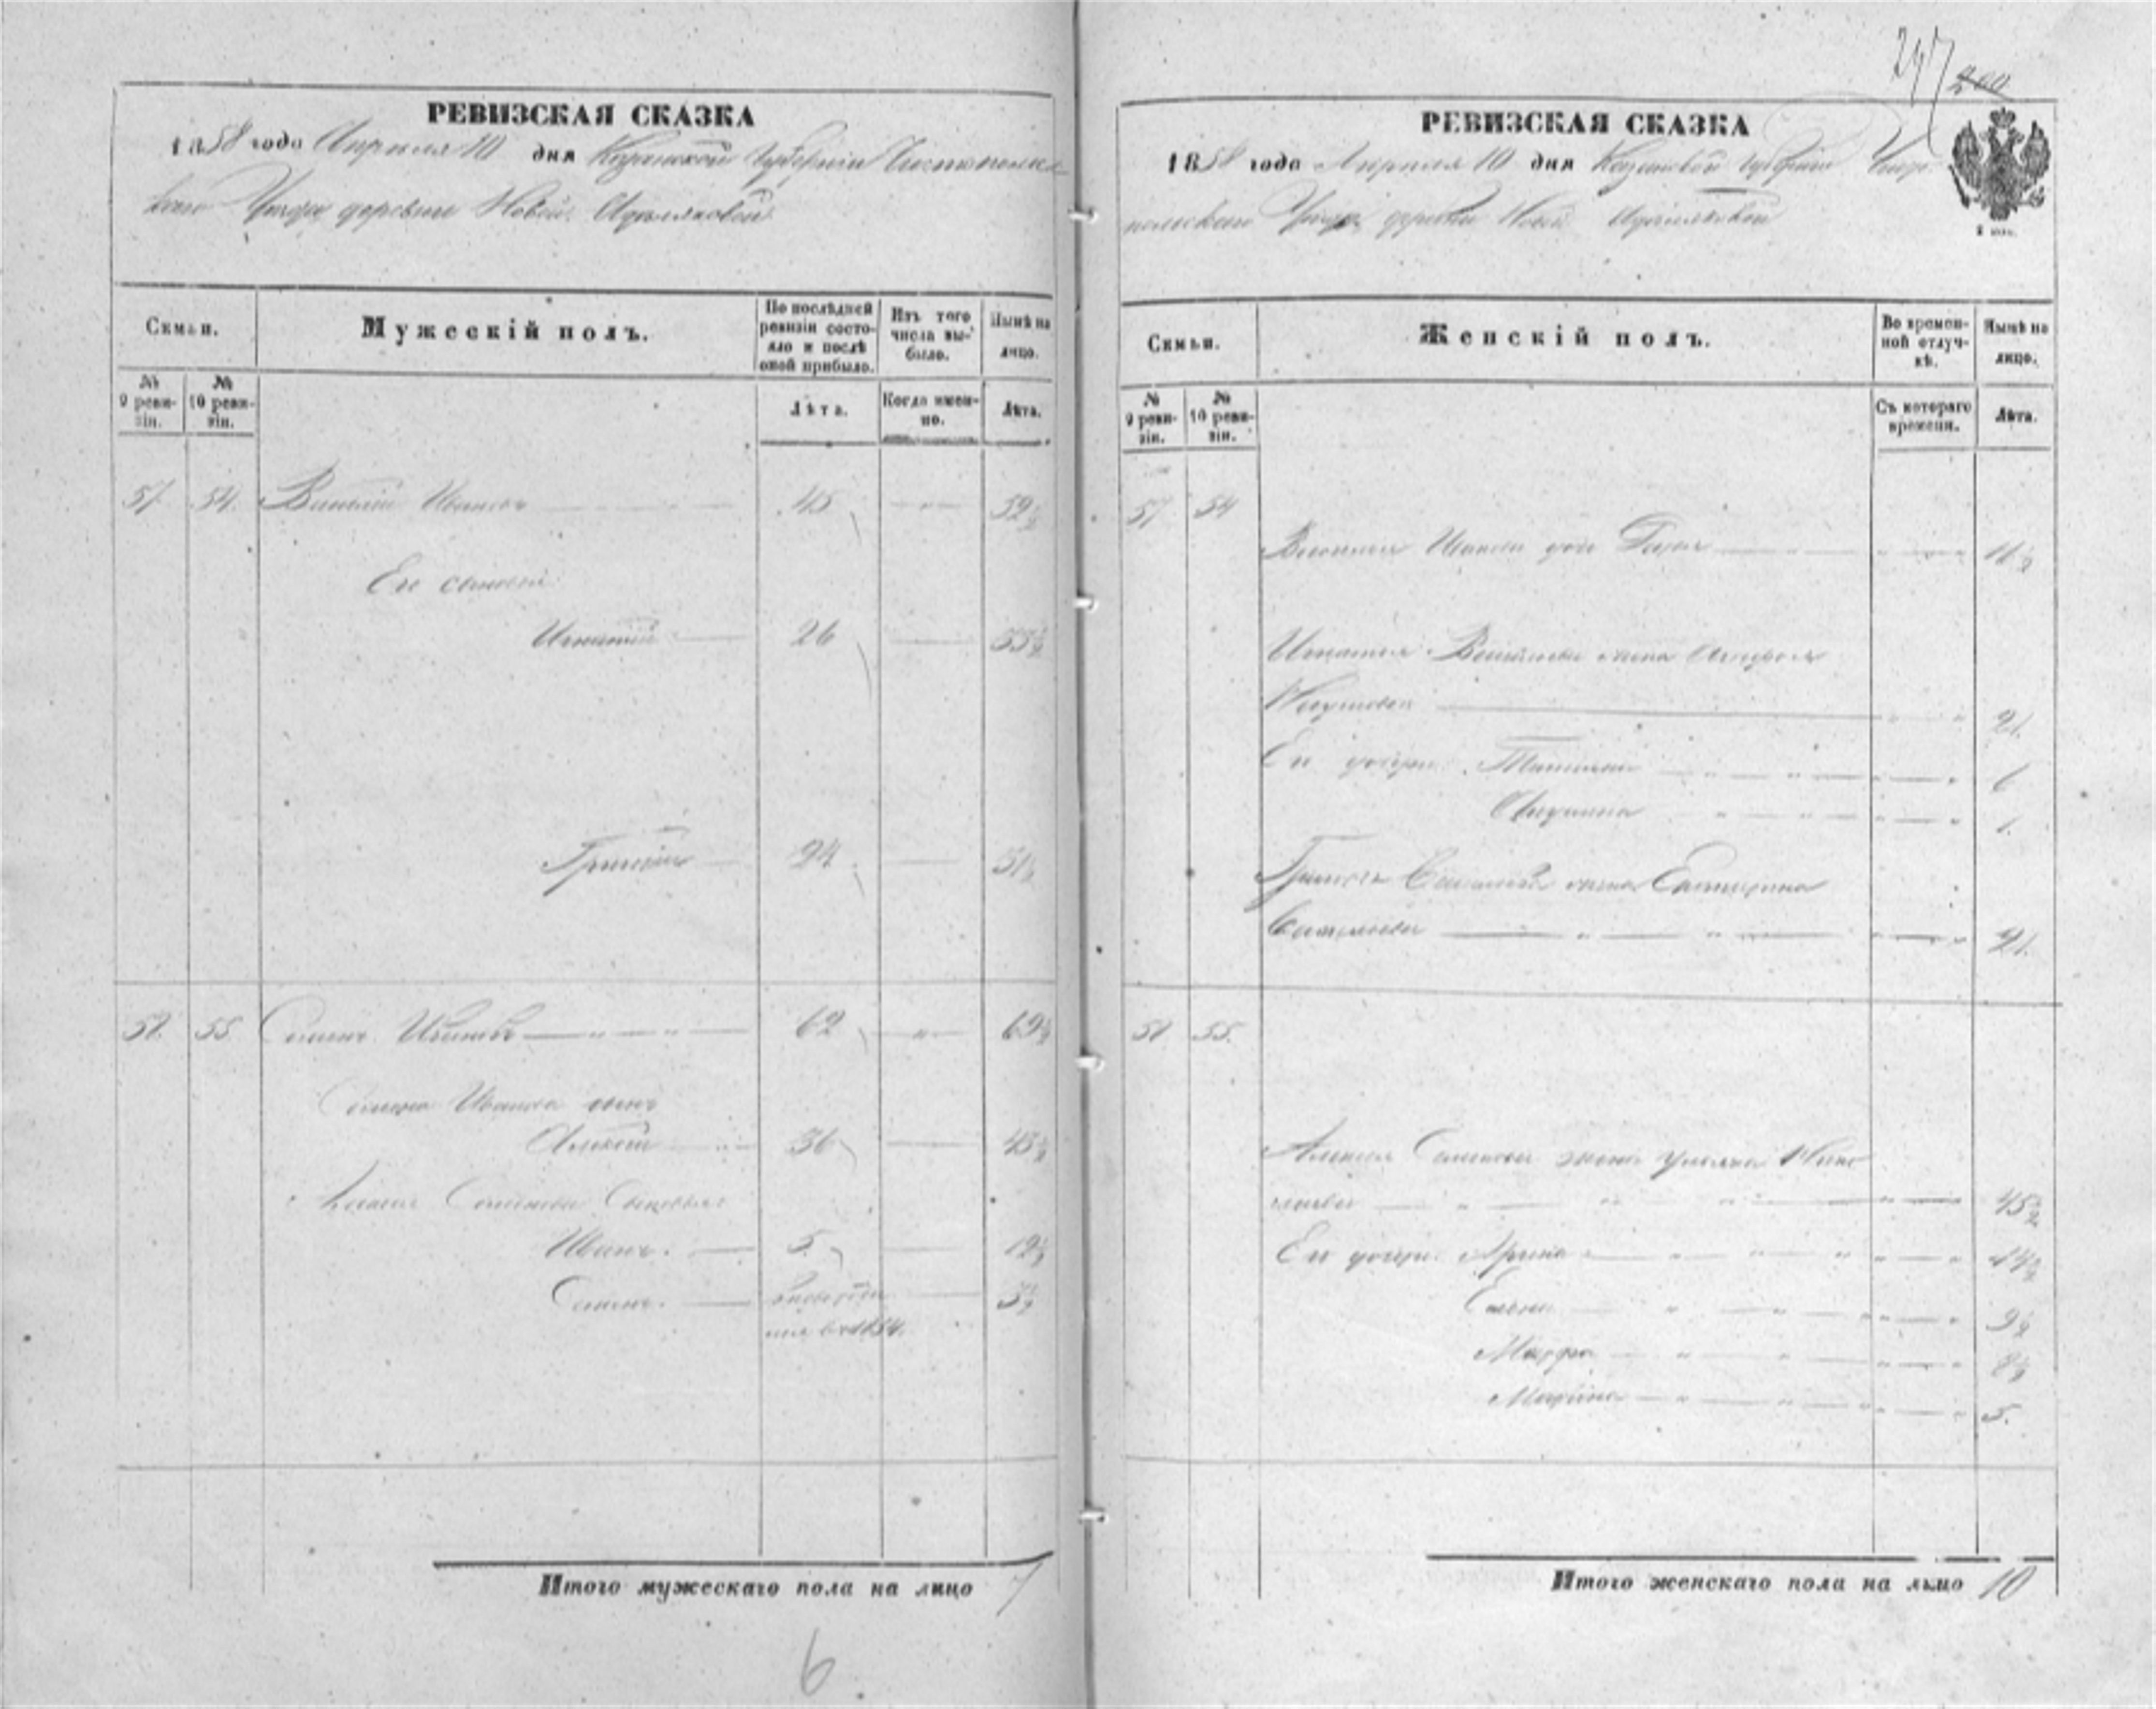 РЕВИЗСКАЯ СКАЗКА
1858 года Апреля 10 дня Казанской Губернии Чистопольс
каго Уезда деревни Новой
Семьи.
Мужескій полъ.
По послѣдней ревизіи состояло и послѣ оной прибыло.
Изъ того числа выбыло.
Нынѣ на лицо.
№ 9 ревизіи.
№ 10 ревизіи.
Лѣта.
Когда именно.
Лѣта.
57. 54. Василій Ивановъ 45 52½
Его сыновья
Игнатій 26 33½
Григорій 24 31½
58. 55 Семенъ Ивановъ 62 69½
Семена Иванова сынъ
Алексѣй 36 43½
Семенова Сыновья
Иванъ. 5. 12½
Семенъ. 3½
1854.
Итого мужескаго пола на лицо 7
6.
247 200
РЕВИЗСКАЯ СКАЗКА
1858 года Апреля 10 дня Казанской Губернии Чисто
польскаго Уезда деревни Новой
Семьи.
Женскій полъ.
Во временной отлучкѣ.
Нынѣ на лицо.
№ 9 ревизіи.
№ 10 ревизіи.
Съ котораго времени.
Лѣта.
57 54
Василья Иванова дочь
Игнатья Васильева жена
21.
Ея дочери Татьяна 6
1.
Григорья Васильева жена Екатерина
21.
58 55.
Алексея Семенова жена Ульяна Нико
лаева 45½
Ея дочери Арина 14½
Елена 9½
Марфа 8½
Марина 5.
Итого женскаго пола на лицо 10